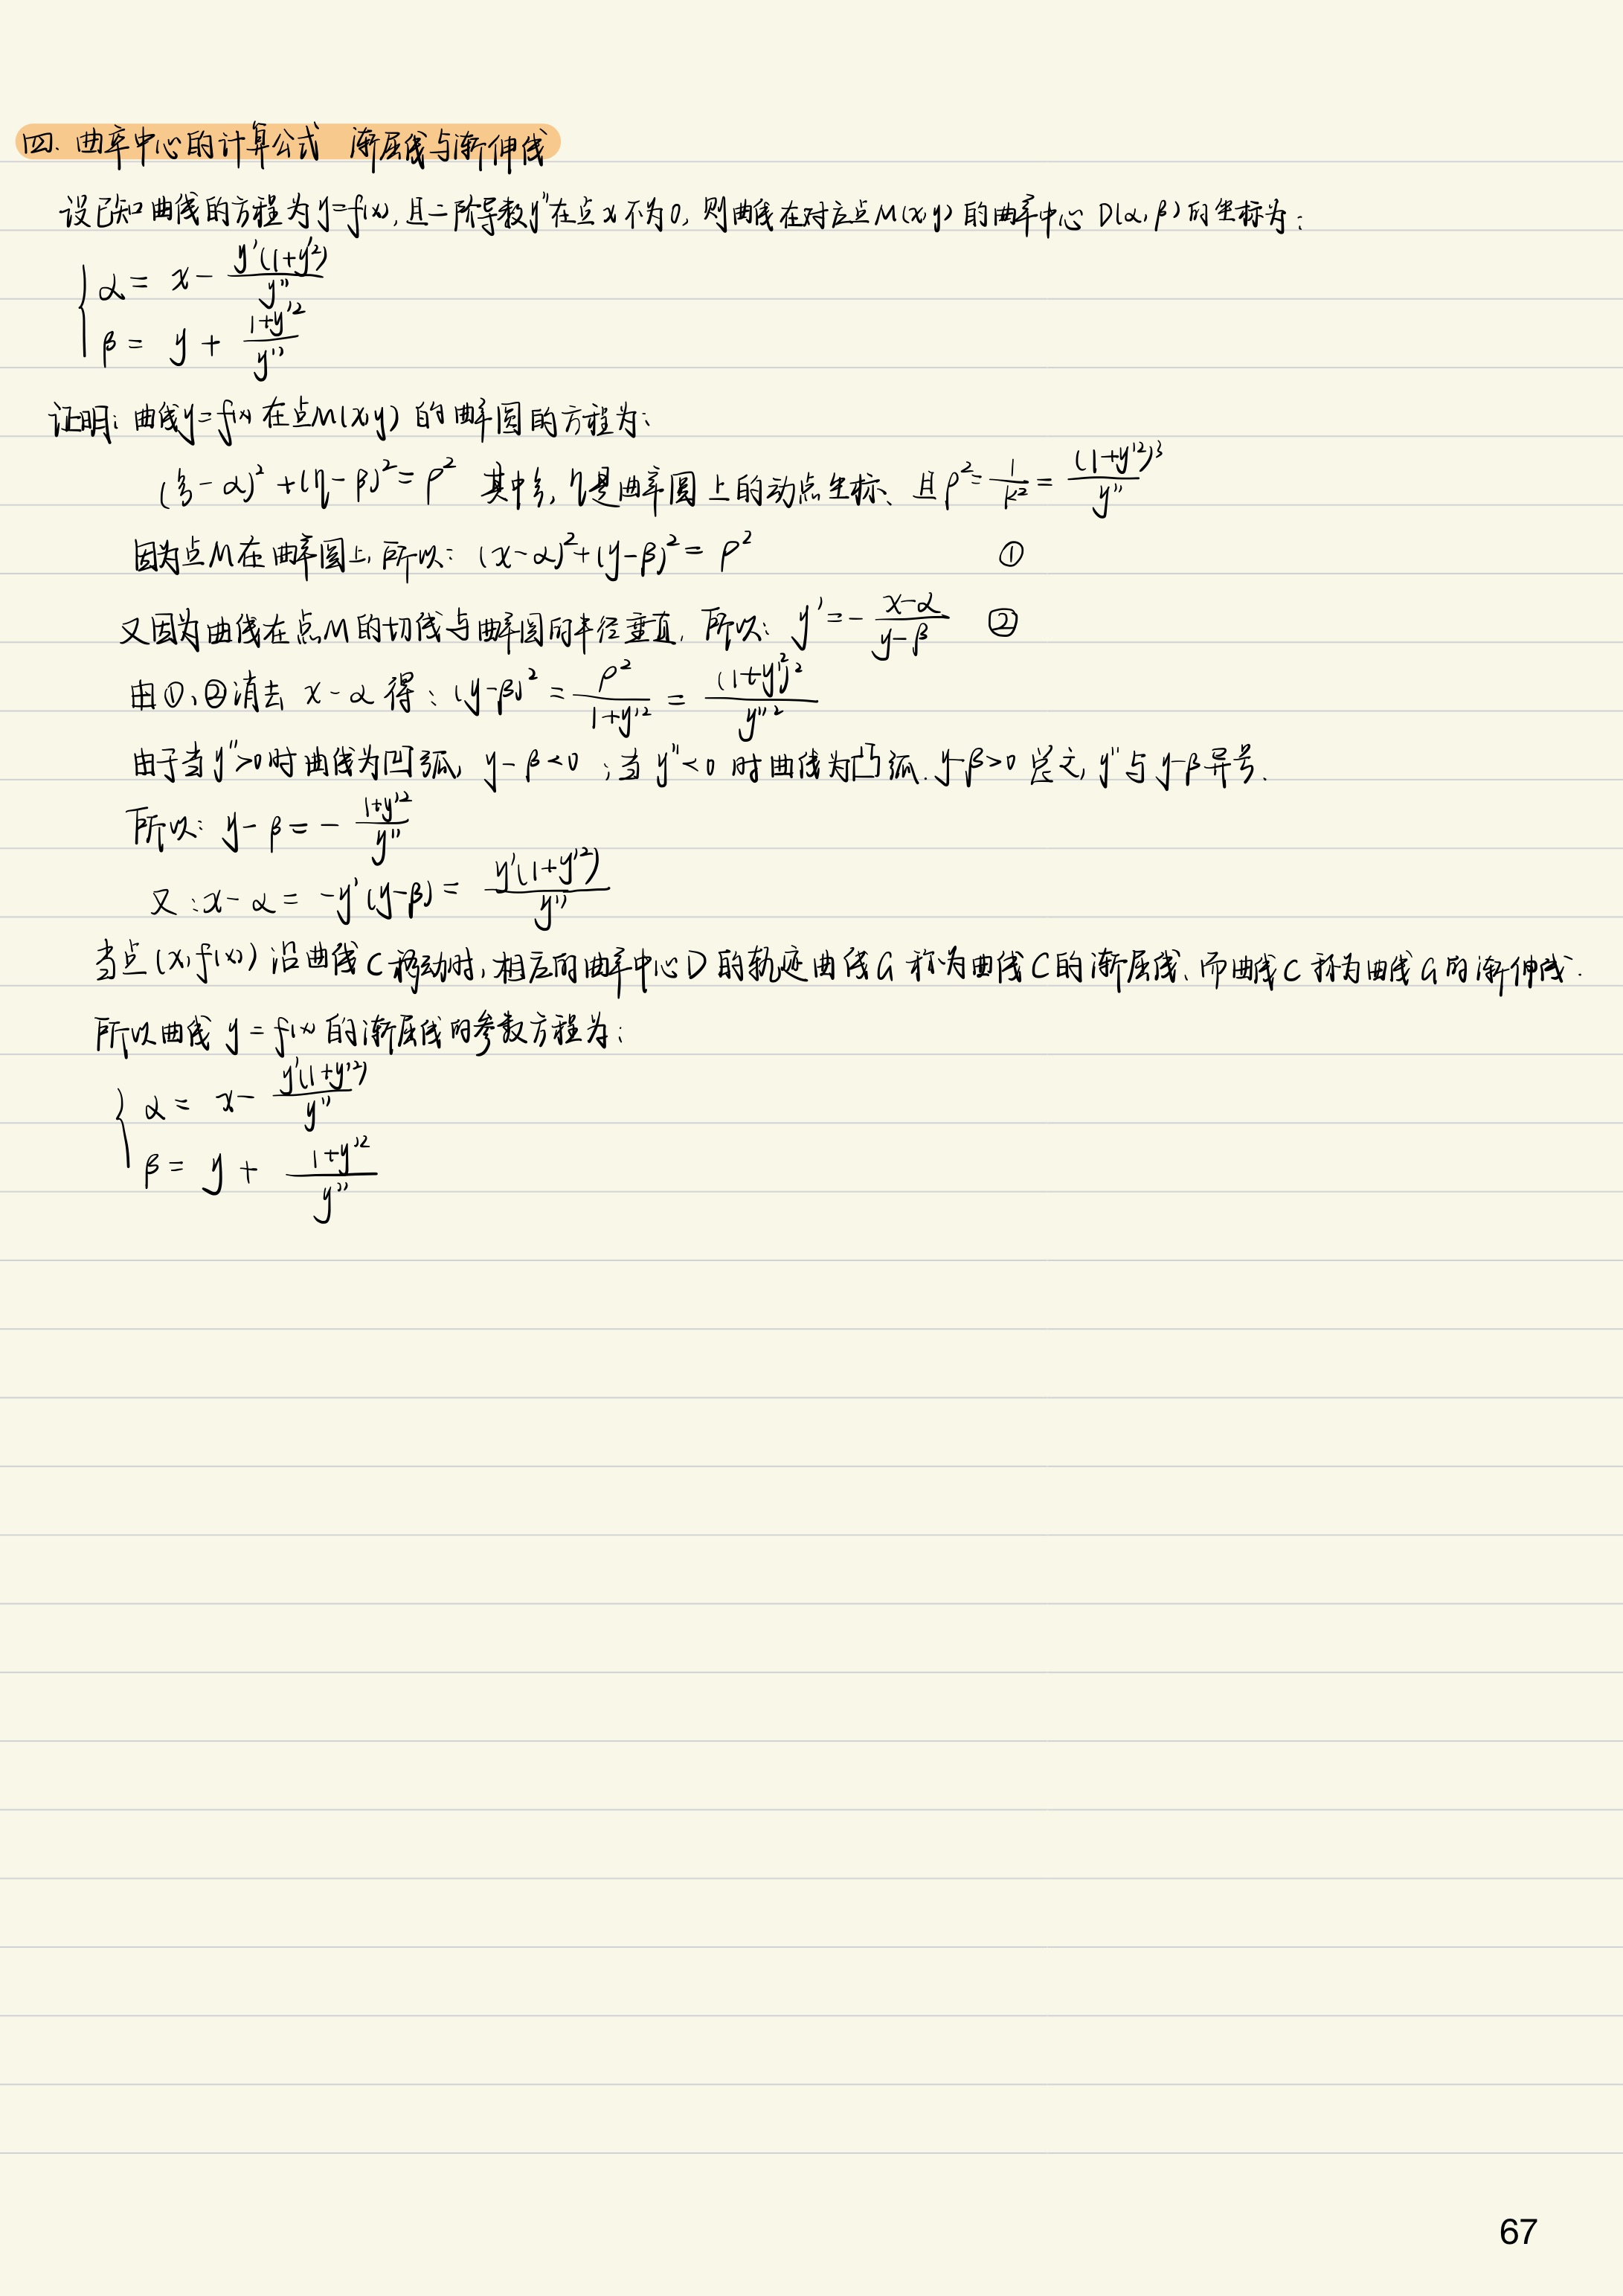 四. 曲率中心的计算公式 渐屈线与渐伸线
设已知曲线的方程为y=f(x), 且二阶导数y''在点x不为0, 则曲线在对应点M(x,y)的曲率中心 D(α,β)的坐标为:
{ α = x - y'(1+y'^2)/y''
β = y + (1+y'^2)/y''
证明: 曲线y=f(x)在点M(x,y)的曲率圆的方程为:
(ξ-α)²+(η-β)²=ρ² 其中ξ,η是曲率圆上的动点坐标、且ρ²=1/k²=(1+y'^2)³/y''
因为点M在曲率圆上, 所以: (x-α)²+(y-β)²=ρ² ①
又因为曲线在点M的切线与曲率圆的半径垂直, 所以: y'=-(x-α)/(y-β) ②
由①、②消去 x-α 得: (y-β)²=ρ²/(1+y'^2)=(1+y'^2)²/y''^2
由于当y''>0时曲线为凹弧, y-β<0 ;当y''<0时曲线为凸弧. y-β>0 总之, y''与y-β异号.
所以: y-β=-(1+y'^2)/y''
又:x-α=-y'(y-β)=y'(1+y'^2)/y''
当点(x,f(x))沿曲线C移动时, 相应的曲率中心D的轨迹曲线G称为曲线C的渐屈线、而曲线C称为曲线G的渐伸线.
所以曲线 y=f(x)的渐屈线的参数方程为:
{ α = x - y'(1+y'^2)/y''
β = y + (1+y'^2)/y''
67